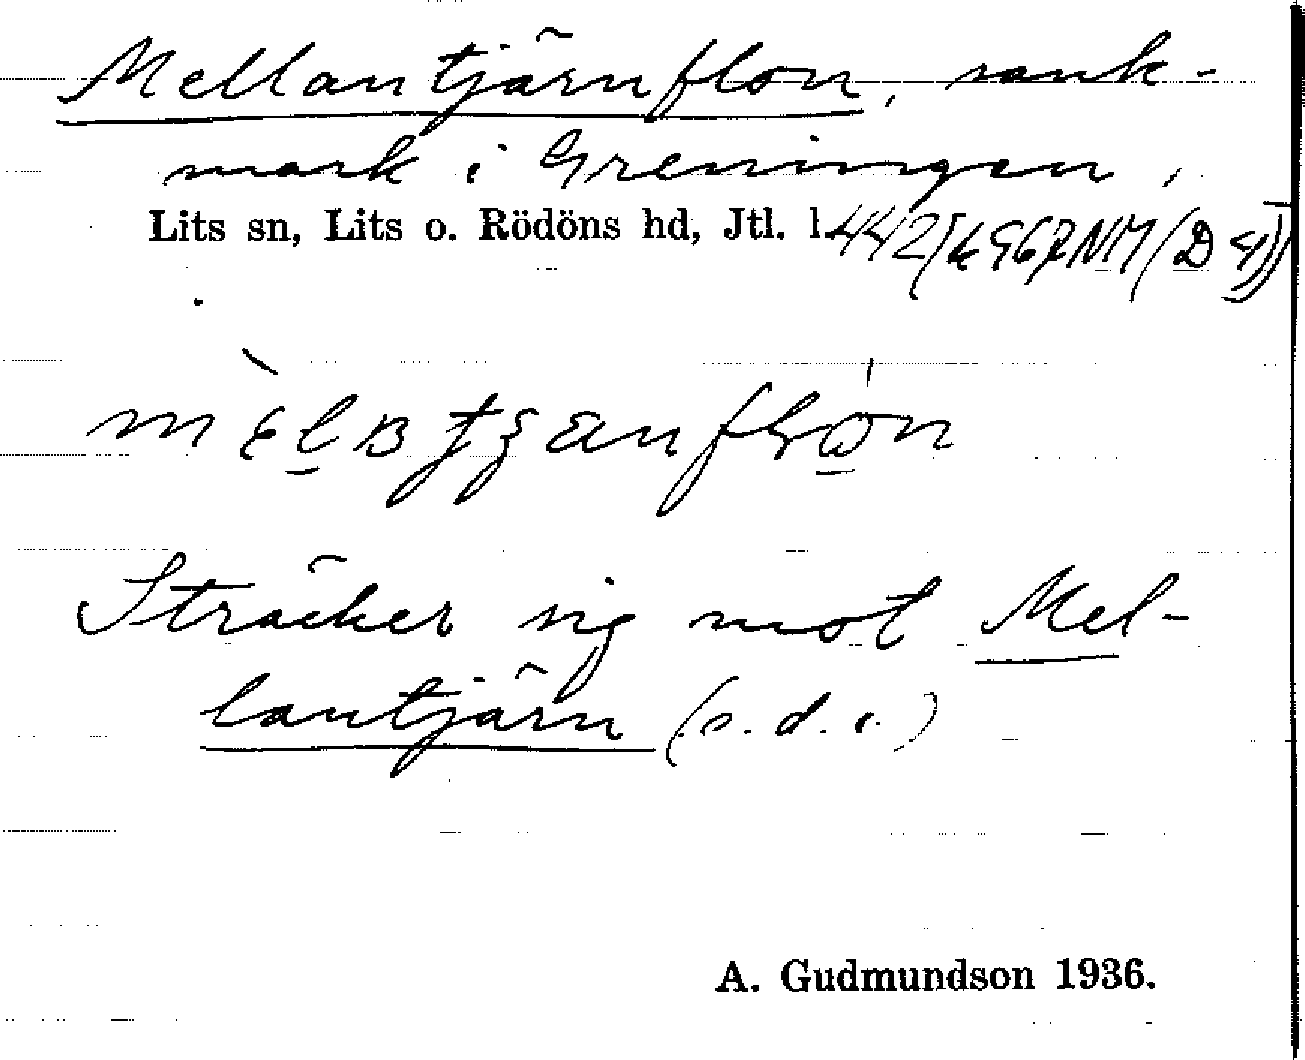 Mellantjärnflon, sank-
mark i Greningen,
Lits sn, Lits o. Rödöns hd, Jtl. l.
Sträcker sig mot Mel-
lantjärn (s. d. o.)
A. Gudmundson 1936.